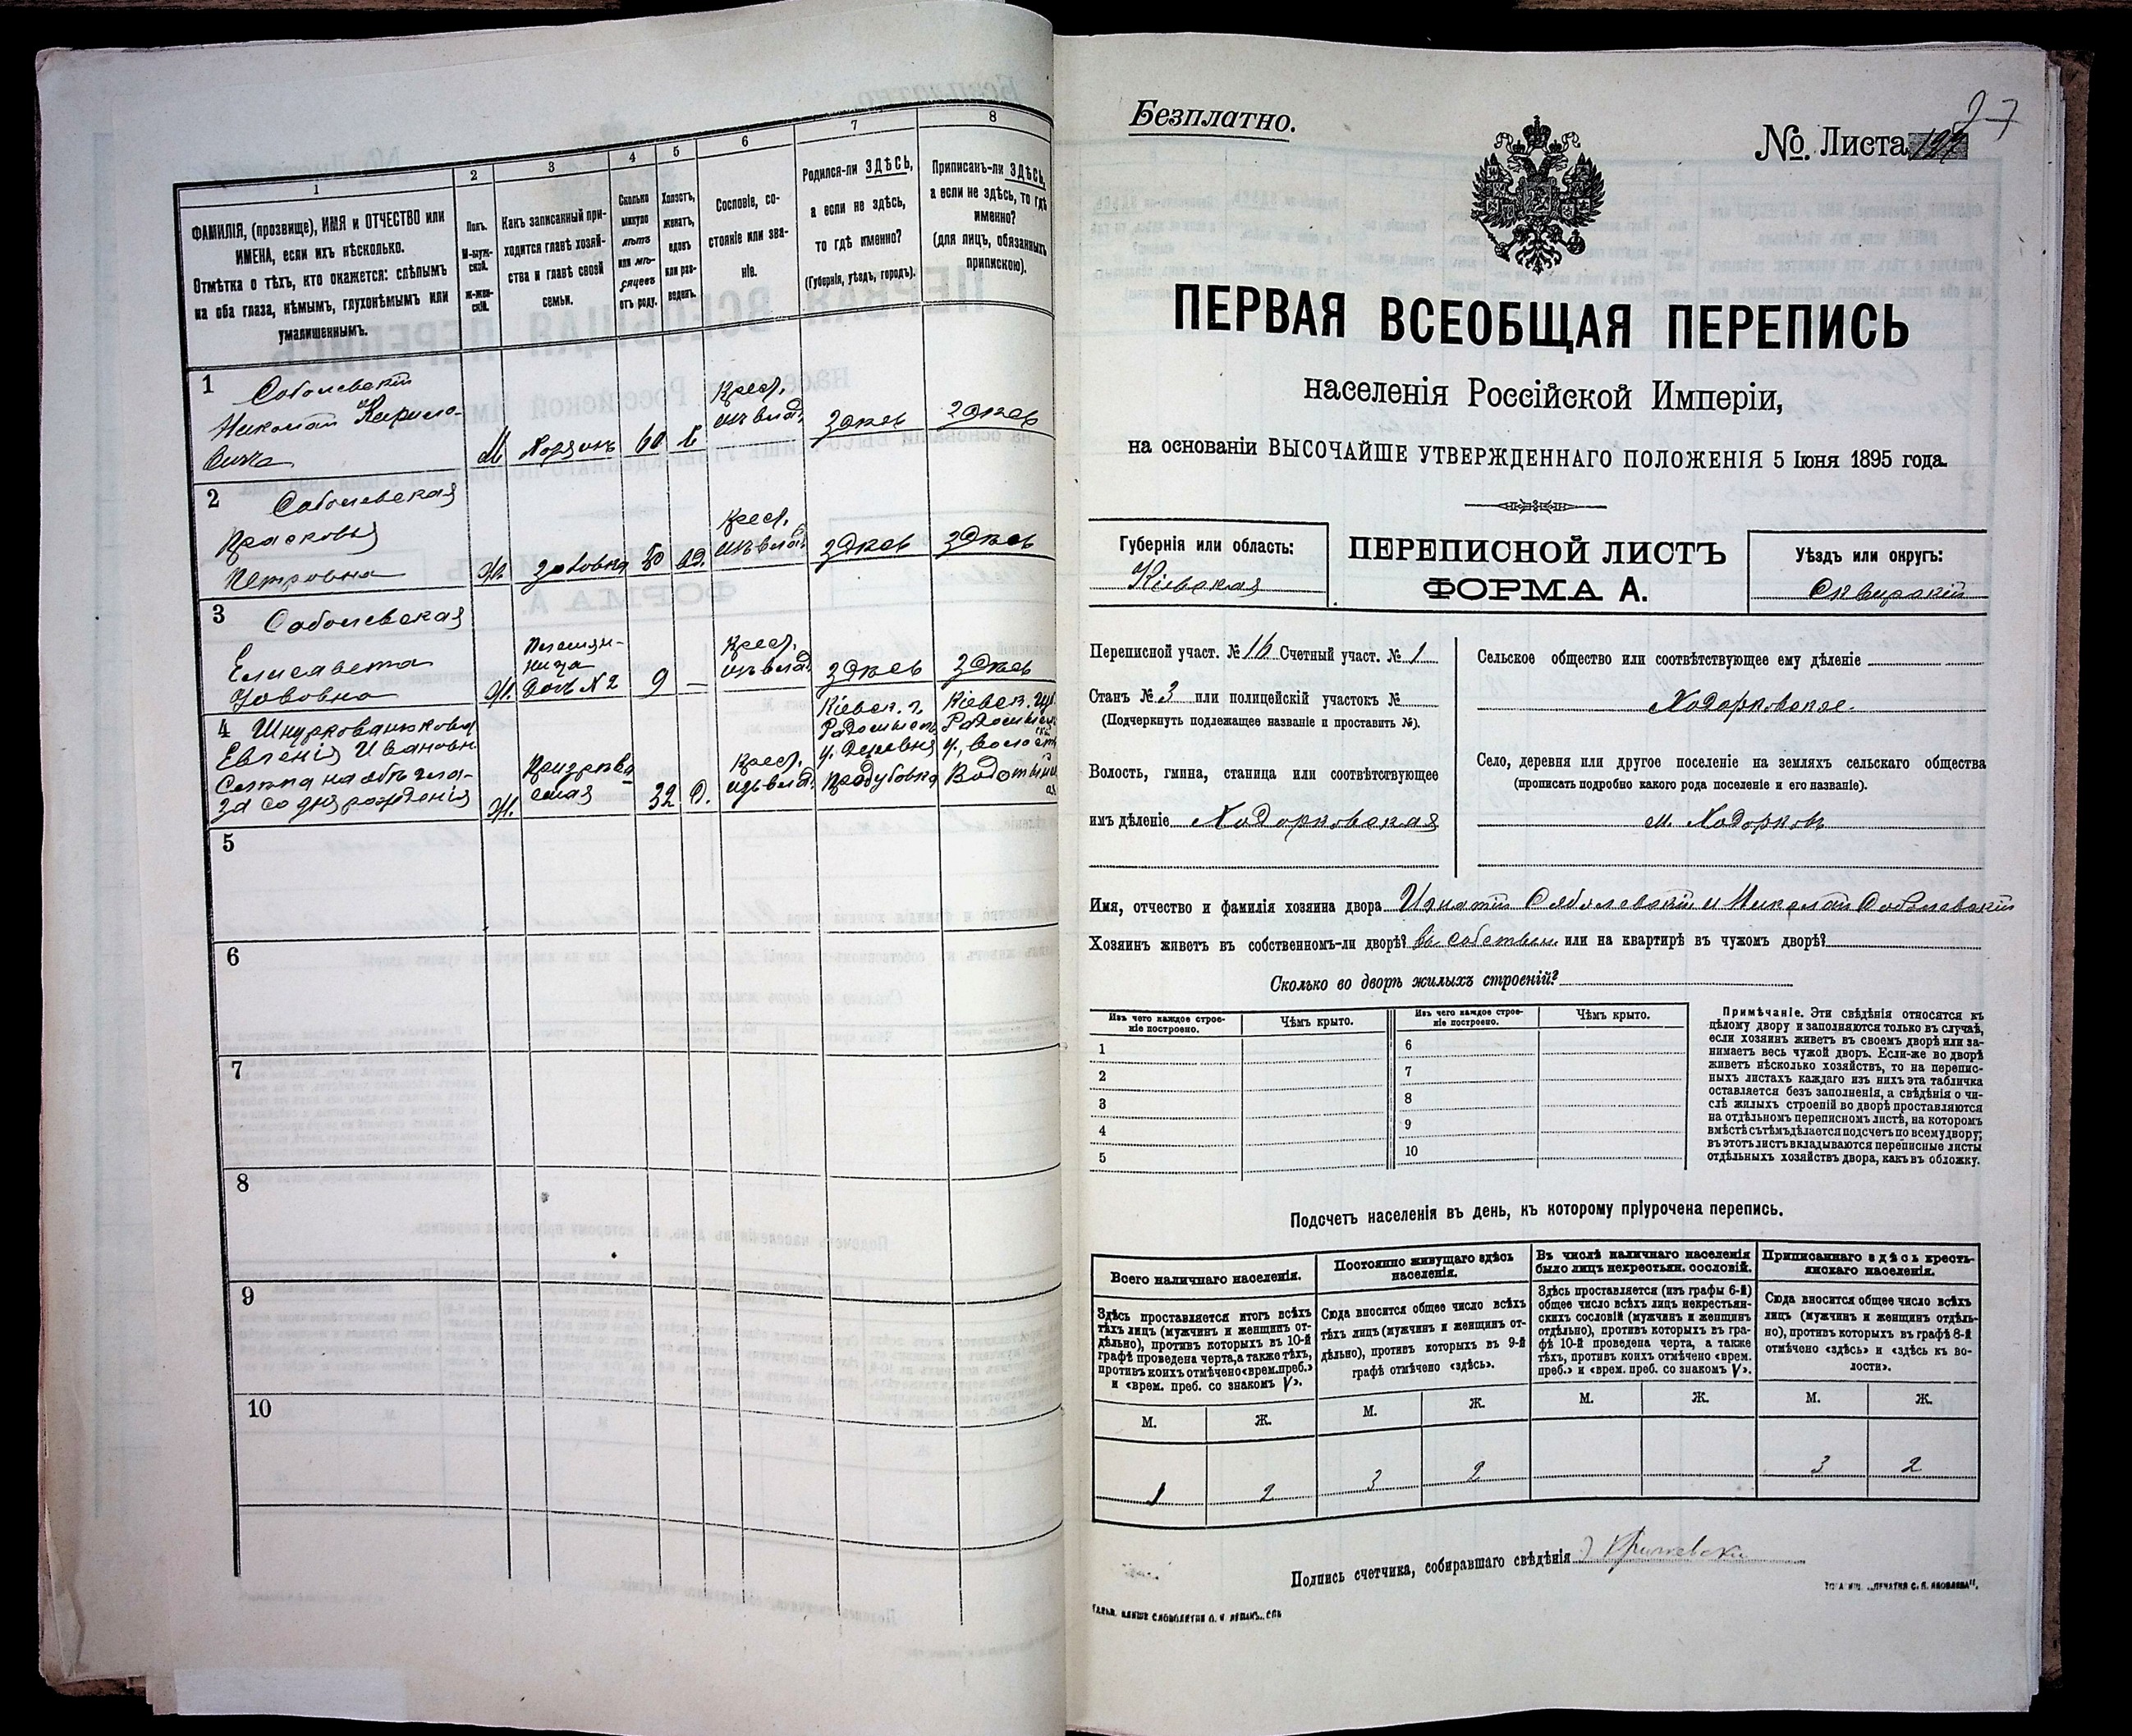 1
2
3
4
5
6
7
8
ФАМИЛІЯ, (прозвище), ИМЯ и ОТЧЕСТВО или
ИМЕНА, если ихъ нѣсколько.
Отмѣтка о тѣхъ, кто окажется: слѣпымъ
на оба глаза, нѣмымъ, глухонѣмымъ или
умалишеннымъ.
Полъ.
М-муж-
ской.
Ж-жен-
скій.
Какъ записанный при-
ходится главѣ хозяй-
ства и главѣ своей
семьи.
Сколько
минуло
лѣтъ
или мѣ-
сяцевъ
отъ роду.
Холостъ,
женатъ,
вдовъ
или раз-
веденъ.
Сословіе, со-
стояніе или зва-
ніе.
Родился-ли ЗДѢСЬ,
а если не здѣсь,
то гдѣ именно?
(Губернія, уѣздъ, городъ).
Приписанъ-ли ЗДѢСЬ,
а если не здѣсь, то гдѣ
именно?
(для лицъ, обязанныхъ
припискою).
1 Соболевскій
Николай
вича
М
60
Крест.
изъ влад.
здѣсь
здѣсь
2 Соболевская
Прасковья
Петровна
Ж
50
вд.
Крест.
изъ влад.
здѣсь
здѣсь
3 Соболевская
Елисавета
Ж.
Племян-
ница
дочь №2
9
—
Крест.
изъ влад.
здѣсь
здѣсь
4
Евгенія Ивановн.
Слѣпа на обѣ гла-
за со дня рожденія
Ж.
Призрѣва
емая
32
Д.
Крест.
изъ влад.
Кіевск. г.
Радомысл.
у. Деревня
Кіевск. губ.
Радомысл
у., волость
5
6
7
8
9
10
Безплатно.
27
№ Листа
ПЕРВАЯ ВСЕОБЩАЯ ПЕРЕПИСЬ
населенія Россійской Имперіи,
на основаніи ВЫСОЧАЙШЕ УТВЕРЖДЕННАГО ПОЛОЖЕНІЯ 5 Іюня 1895 года.
Губернія или область:
Кіевская
ПЕРЕПИСНОЙ ЛИСТЪ
ФОРМА А.
Уѣздъ или округъ:
Сквирскій
Переписной участ. № 16 Счетный участ. № 1
Станъ № 3 или полицейскій участокъ №
(Подчеркнуть подлежащее названіе и проставить №).
Волость, гмина, станица или соотвѣтствующее
имъ дѣленіе Ходорковская
Сельское общество или соотвѣтствующее ему дѣленіе
Ходорковское.
Село, деревня или другое поселеніе на земляхъ сельскаго общества
(прописать подробно какого рода поселеніе и его названіе).
м. Ходорковъ
Имя, отчество и фамилія хозяина двора Игнатій Соболевскій и Николай Соболевскій
Хозяинъ живетъ въ собственномъ-ли дворѣ? въ собствен. или на квартирѣ въ чужомъ дворѣ?
Сколько во дворѣ жилыхъ строеній?
Изъ чего каждое строе-
ніе построено.
Чѣмъ крыто.
Изъ чего каждое строе-
ніе построено.
Чѣмъ крыто.
1
2
3
4
5
6
7
8
9
10
Примѣчаніе. Эти свѣдѣнія относятся къ
цѣлому двору и заполняются только въ случаѣ,
если хозяинъ живетъ въ своемъ дворѣ или за-
нимаетъ весь чужой дворъ. Если-же во дворѣ
живетъ нѣсколько хозяйствъ, то на перепис-
ныхъ листахъ каждаго изъ нихъ эта табличка
оставляется безъ заполненія, а свѣдѣнія о чи-
слѣ жилыхъ строеній во дворѣ проставляются
на отдѣльномъ переписномъ листѣ, на которомъ
вмѣстѣ съ тѣмъ дѣлается подсчетъ по всему двору;
въ этотъ листъ вкладываются переписные листы
отдѣльныхъ хозяйствъ двора, какъ въ обложку.
Подсчетъ населенія въ день, къ которому пріурочена перепись.
Всего наличнаго населенія.
Постоянно живущаго здѣсь
населенія.
Въ числѣ наличнаго населенія
было лицъ некрестьян. сословій.
Приписаннаго здѣсь кресть-
янскаго населенія.
Здѣсь проставляется итогъ всѣхъ
тѣхъ лицъ (мужчинъ и женщинъ от-
дѣльно), противъ которыхъ въ 10-й
графѣ проведена черта, а также тѣхъ,
противъ коихъ отмѣчено «врем. преб.»
и «врем. преб. со знакомъ V».
Сюда вносится общее число всѣхъ
тѣхъ лицъ (мужчинъ и женщинъ от-
дѣльно), противъ которыхъ въ 9-й
графѣ отмѣчено «здѣсь».
Здѣсь проставляется (изъ графы 6-й)
общее число всѣхъ лицъ некрестьян-
скихъ сословій (мужчинъ и женщинъ
отдѣльно), противъ которыхъ въ гра-
фѣ 10-й проведена черта, а также
тѣхъ, противъ коихъ отмѣчено «врем.
преб.» и «врем. преб. со знакомъ V».
Сюда вносится общее число всѣхъ
лицъ (мужчинъ и женщинъ отдѣль-
но), противъ которыхъ въ графѣ 8-й
отмѣчено «здѣсь» и «здѣсь къ во-
лости».
М. Ж. М. Ж. М. Ж. М. Ж.
1 2 3 2 3 2
Подпись счетчика, собиравшаго свѣдѣнія